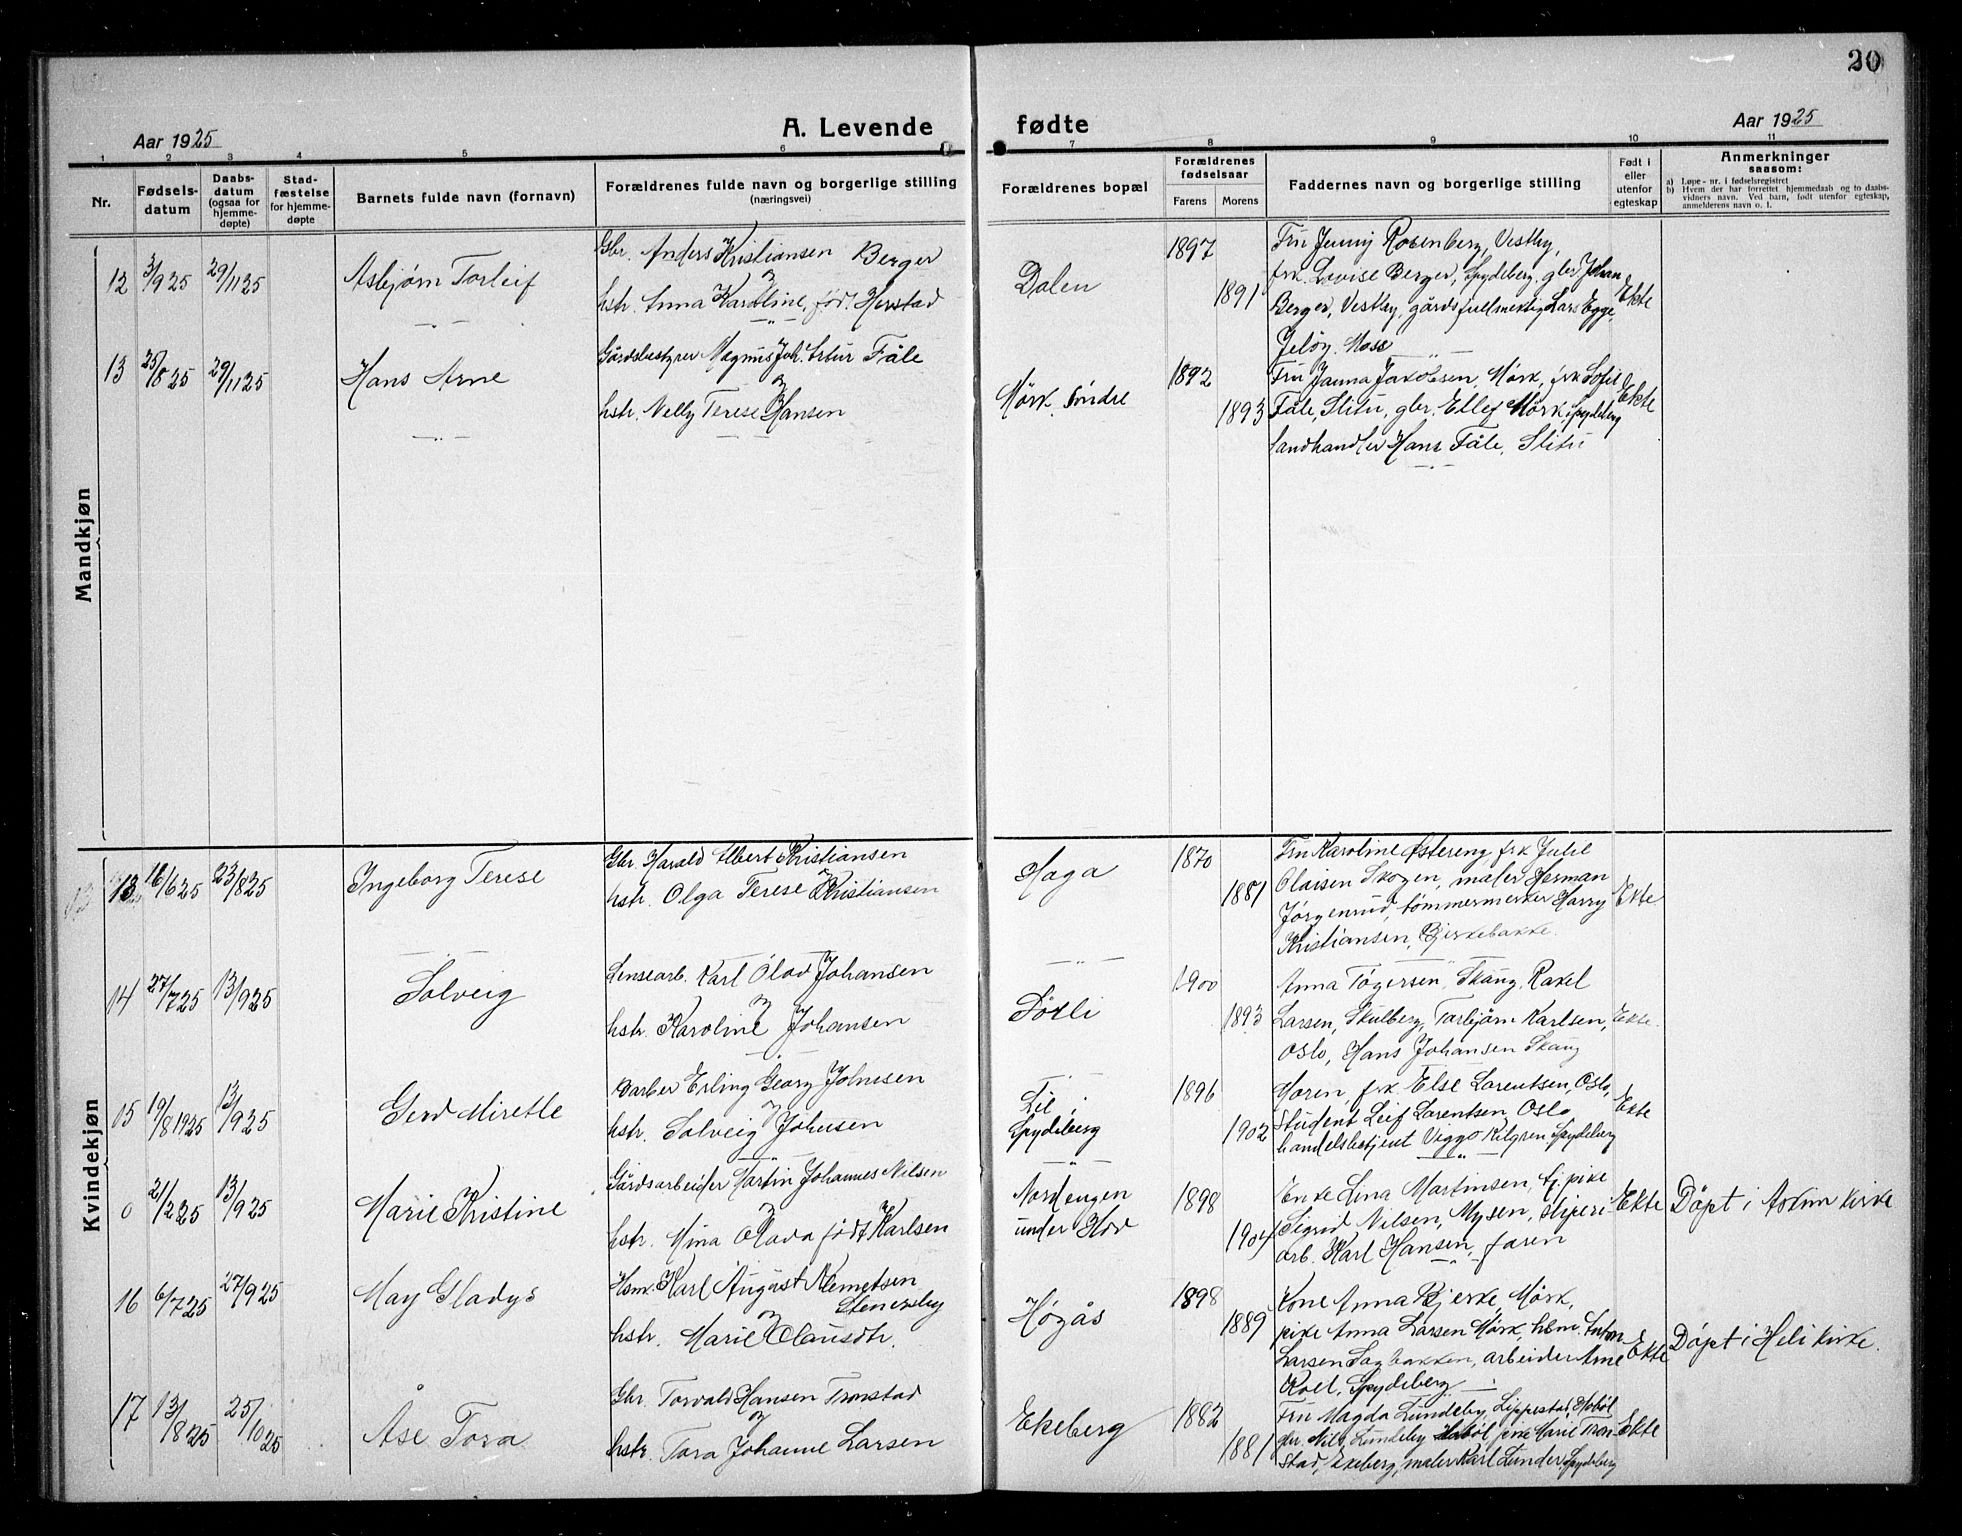 20
Aar 1925
A. Levende
fødte
Aar 1925
1 2 3 4 5 6 7 8 9 10 11
Nr.
Fødsels-
datum
Daabs-
datum
(ogsaa for
hjemme-
døpte)
Stad-
fæstelse
for hjemme-
døpte
Barnets fulde navn (fornavn)
Forældrenes fulde navn og borgerlige stilling
(næringsvei)
Forældrenes bopæl
Forældrenes
fødselsaar
Farens Morens
Faddernes navn og borgerlige stilling
Født i
eller
utenfor
egteskap
Anmerkninger
saasom:
a) Løpe-nr. i fødselsregistret
b) Hvem der har forrettet hjemmedaab og to daabs-
vidners navn. Ved barn, født utenfor egteskap,
anmelderens navn o. l.
Mandkjøn
12 3/9 25 29/11 25 Asbjørn Torleif
Gbr. Anders Kristiansen Berger
og
hstr. Anna Karoline, fød. Herstad
Dalen
1897
1891
Fru Jenny Rosenberg, Vestby,
frk. Lovise Berger, Spydeberg. gbr Johan
Berger, Vestby, gårdsfullmektig Lars Egge,
Jeløy. Moss
Ekte
13 25/8 25 29/11 25 Hans Arne
Gårdsbestyrer Magnus Joh. Artur Fåle
og
hstr. Nelly Terese Hansen
Mørk, søndre
1892
1893
Fru Janna Jakobsen, Mørk, frk Sofie
Fåle, Slitu, gbr. Ellef Mørk, Spydeberg
landhandler Hans Fåle, Slitu
Ekte
Kvindekjøn
13 16/6 25 23/8 25 Ingeborg Terese
Gbr. Harald Albert Kristiansen
og
hstr. Olga Terese Kristiansen
Haga
1870
1881
Fru Karoline Østereng, frk Julie
Olaisen Skogen, maler Herman
Jørgenrud, tømmermerker Harry
Kristiansen, Bjerkebakke.
Ekte
14 27/7 25 13/9 25 Solveig
Lensearb. Karl Olav Johansen
og
hstr. Karoline Johansen
1900
1893
Anna Tøgersen, Skaug, Rakel
Larsen, Skulberg, Torbjørn Karlsen,
Oslo, Hans Johansen Skaug
Ekte.
15 19/8 1925 13/9 25 Gerd Mirette
Barber Erling Georg Johnsen
og
hstr. Solveig Johnsen
Lie,
Spydeberg
1896
1902
Moren, frk. Else Lorentsen, Oslo,
Student Leif Lorentsen, Oslo
handelsbetjent Viggo Kilgren Spydeberg
Ekte
0 21/2 25 13/9 25 Marie Kristine
Gårdsarbeider Martin Johannes Nilsen
og
hstr. Mina Olava født Karlsen
Nordengen
under Hov
1898
1904
Enke Lina Martinsen, tj. pike
Sigrid Nilsen, Mysen, sliperi-
arb. Karl Hansen, faren
Ekte
Døpt i Askim kirke
16 6/7 25 27/9 25 May Gladys
Hsm. Karl August Klemetsen
Stenersby
og
hstr. Marie Clausdtr.
Høgås
1898
1889
Kone Anna Bjerke, Mørk,
pike Anna Larsen Mørk, hbm. Anton
Larsen Sagbakken, arbeider Arne
Roll, Spydeberg
Ekte
Døpt i Heli kirke.
17 13/8 25 25/10 25 Åse Tora
Gbr. Torvald Hansen Tronstad
og
hstr. Tora Johanne Larsen
Ekeberg
1882
1881
Fru Magda Lundeby, Lippestad, Hobøl
gbr. Nils Lundeby Hobøl pike Marie Tron-
stad, Ekeberg, maler Karl Lunder, Spydeberg
Ekte